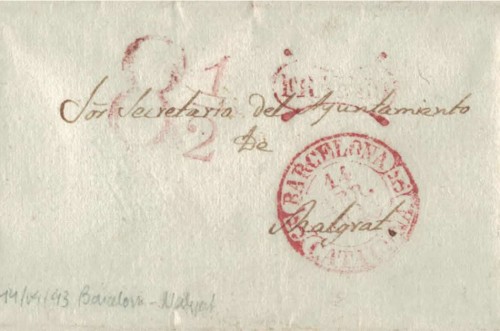 8 1/2
Sor Secretario del Ayuntamiento
De
Malgrat.
BARCELONA
14
14/04/43 Barcelona - Malgrat